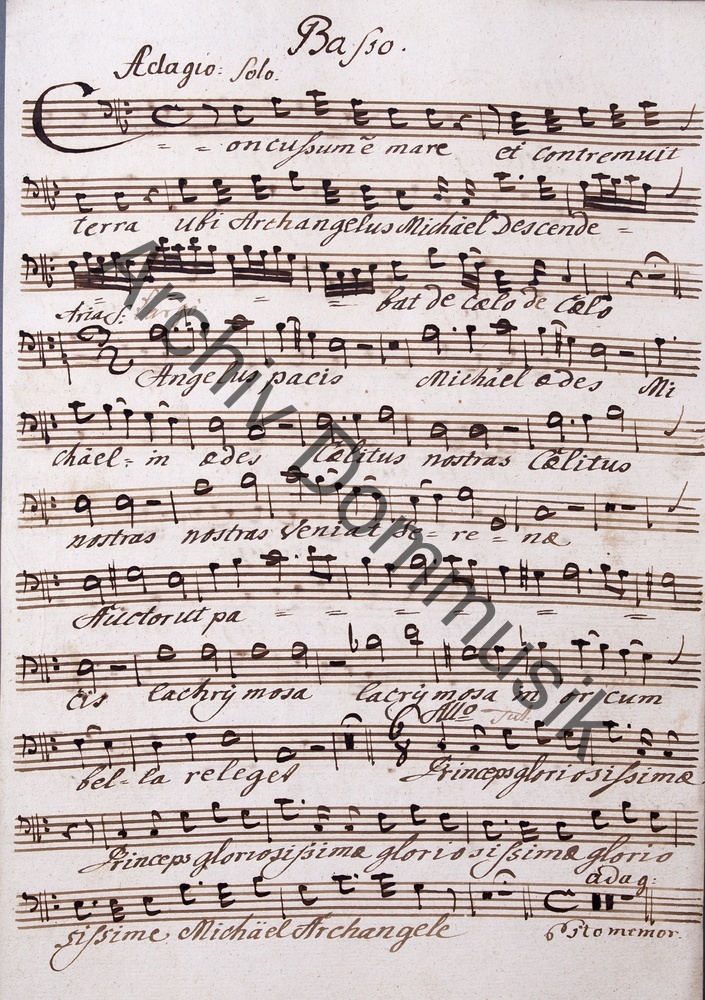 Basso.
Adagio: Solo.
Concussum e mare et contremuit
terra ubi Archangelus Michäel Descende =
= = = bat de cælo de Cælo
Aria S:
Angelus pacis Michäel ædes Mi
chäel = in ædes Cælitus nostras Cælitus
nostras nostras Veniat Se = re = næ
Auctor ut pa = = = = =
cis lachrÿmosa lacrÿmosa in or: cum
Allo
bel = la releget Princeps gloriosissimæ
Princeps gloriosissimæ gloriosissimæ glorio
adag:
sissime Michäel Archangele 6 sto memor.
Archiv Dommusik